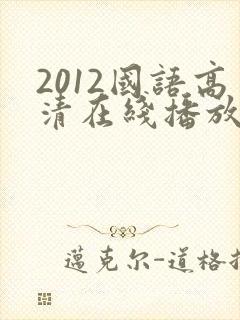 2012國語高
清在綫播放
邁克尔-道格拉